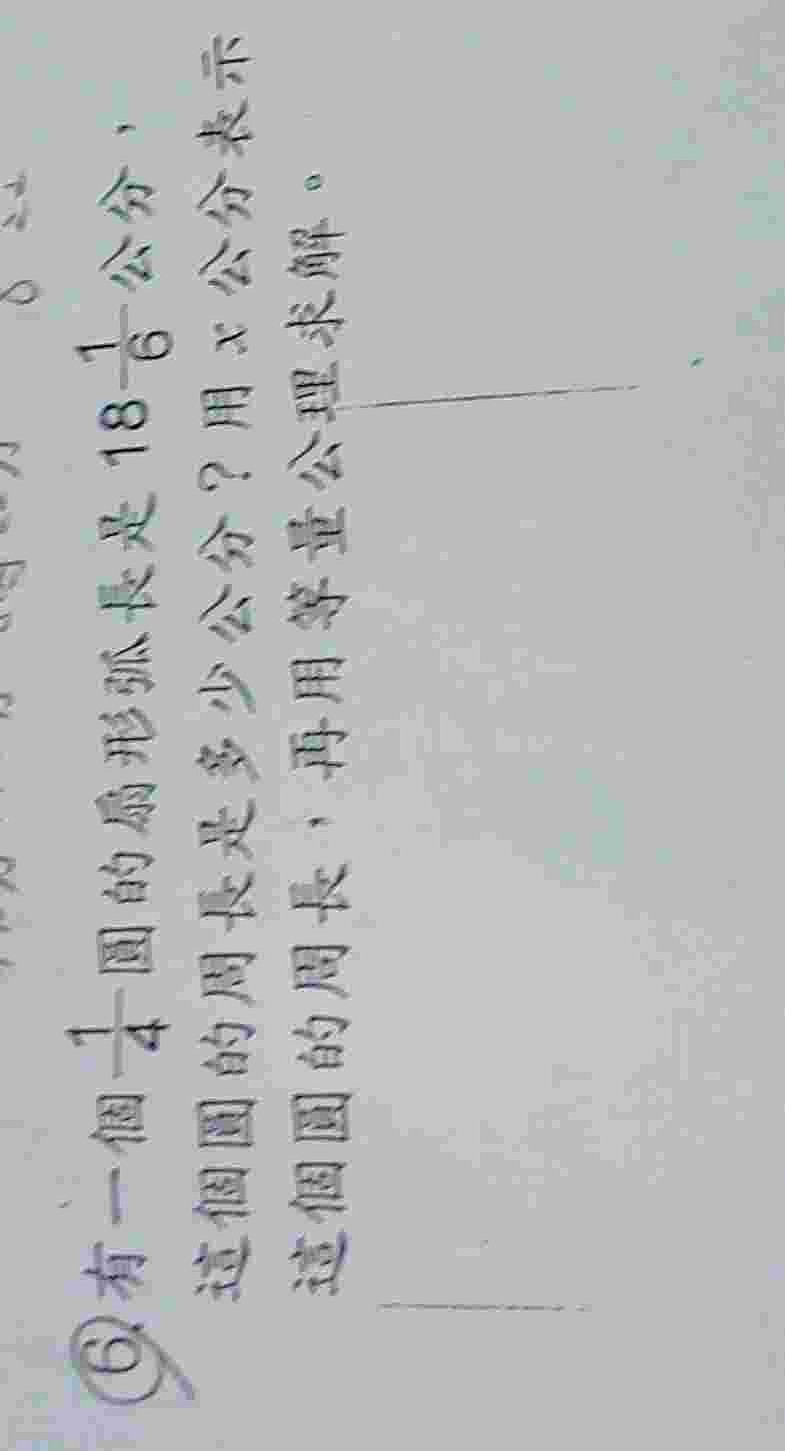 6.有一個1/4圓的扇形弧長是18 1/6公分，
這個圓的周長是多少公分？用x公分表示
這個圓的周長，再用等量公理求解。